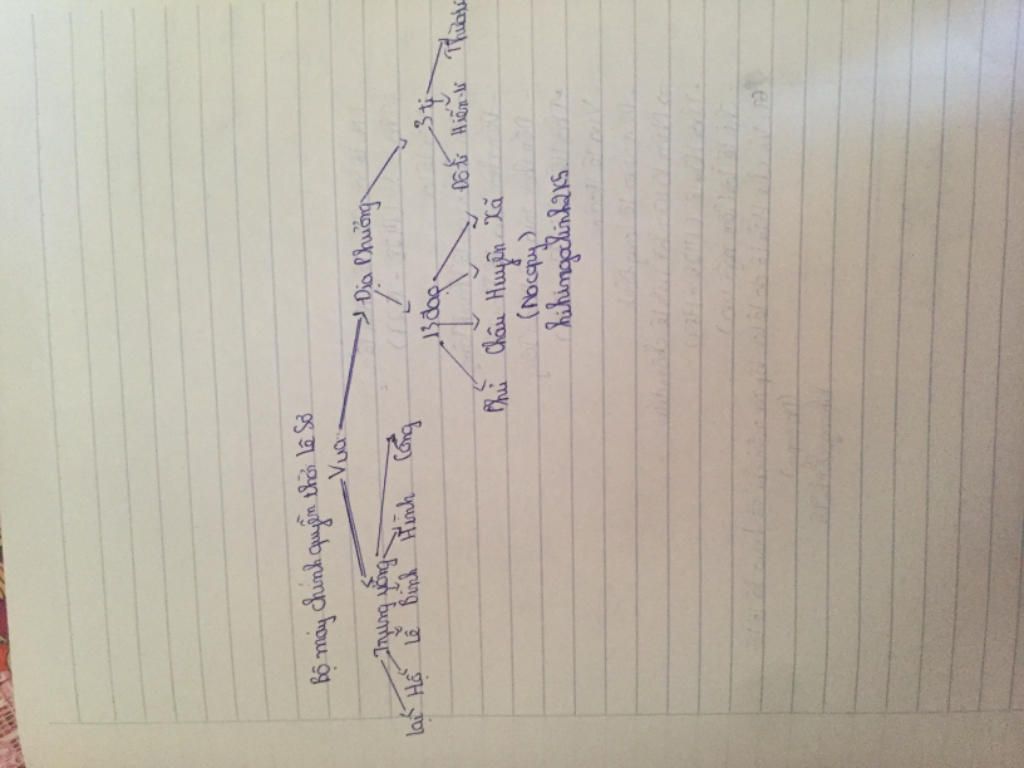 Bộ máy chính quyền thời Lê Sơ
Vua
Trung ương Địa Phương
Lại Hộ Lễ Binh Hình Công
13 đạo 3 ti
Phủ Châu Huyện Xã
Đô ti Hiến ti Thừa ti
(Nacquy)